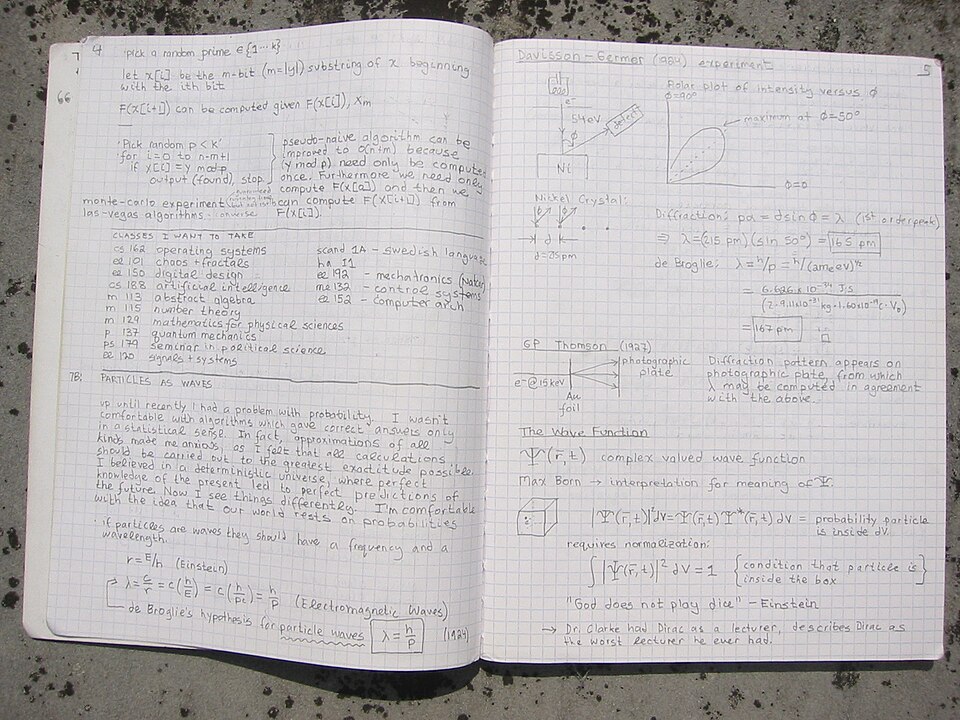 4
7
66
'pick a random prime ∈ {1 ... k}
let x[i] be the m-bit (m=|y|) substring of x beginning
with the ith bit
F(x[i+1]) can be computed given F(x[i]), Xm
'Pick random p < K'
'for i=0 to n-m+1
if x[i] = y mod p
output (found), stop.
pseudo-naive algorithm can be
improved to O(n+m) because
(y mod p) need only be computed
once. Furthermore we need only
compute F(x[a]) and then we
can compute F(x[i+1]) from
F(x[i]).
monte-carlo experiment
las-vegas algorithms - converse
CLASSES I WANT TO TAKE
cs 162 operating systems
ee 101 chaos + fractals
ee 150 digital design
cs 188 artificial intelligence
m 113 abstract algebra
m 115 number theory
m 129 mathematics for physical sciences
p 137 quantum mechanics
ps 179 seminar in political science
ee 120 signals + systems
scand 1A - swedish language
ha I1
ee 192 - mechatronics
me 132 - control systems
ee 152 - computer arch
7B: PARTICLES AS WAVES
up until recently I had a problem with probability. I wasn't
comfortable with algorithms which gave correct answers only
in a statistical sense. In fact, approximations of all
kinds made me anxious, as I felt that all calculations
should be carried out to the greatest exactitude possible.
I believed in a deterministic universe, where perfect
knowledge of the present led to perfect predictions of
the future. Now I see things differently. I'm comfortable
with the idea that our world rests on probabilities.
: if particles are waves they should have a frequency and a
wavelength.
r = E/h (Einstein)
λ = c/r = c(h/E) = c(h/pc) = h/p (Electromagnetic Waves)
de Broglie's hypothesis for particle waves λ = h/p (1924)
5
Davisson-Germer (1924) experiment
e⁻
54eV
ϕ
detect
Ni
Polar plot of intensity versus ϕ
ϕ=90°
maximum at ϕ=50°
ϕ=0
Nickel Crystal:
d
d=215pm
Diffraction: pa = d sin ϕ = λ (1st order peak)
⇒ λ = (215 pm)(sin 50°) = 165 pm
de Broglie: λ = h/p = h/(2meeV)^½
= 6.626 x 10⁻³⁴ J·s / (2·9.11x10⁻³¹ kg·1.60x10⁻¹⁹ C·V₀)
= 167 pm
GP Thomson (1927)
photographic
plate
e⁻ @ 15 keV
Au
foil
Diffraction pattern appears on
photographic plate, from which
λ may be computed in agreement
with the above.
The Wave Function
Ψ(r̄,t) complex valued wave function
Max Born → interpretation for meaning of Ψ.
|Ψ(r̄,t)|²dV = Ψ(r̄,t) Ψ*(r̄,t) dV = probability particle
is inside dV.
requires normalization:
∫|Ψ(r̄,t)|² dV = 1 {condition that particle is
inside the box}
"God does not play dice" - Einstein
→ Dr. Clarke had Dirac as a lecturer, describes Dirac as
the worst lecturer he ever had.